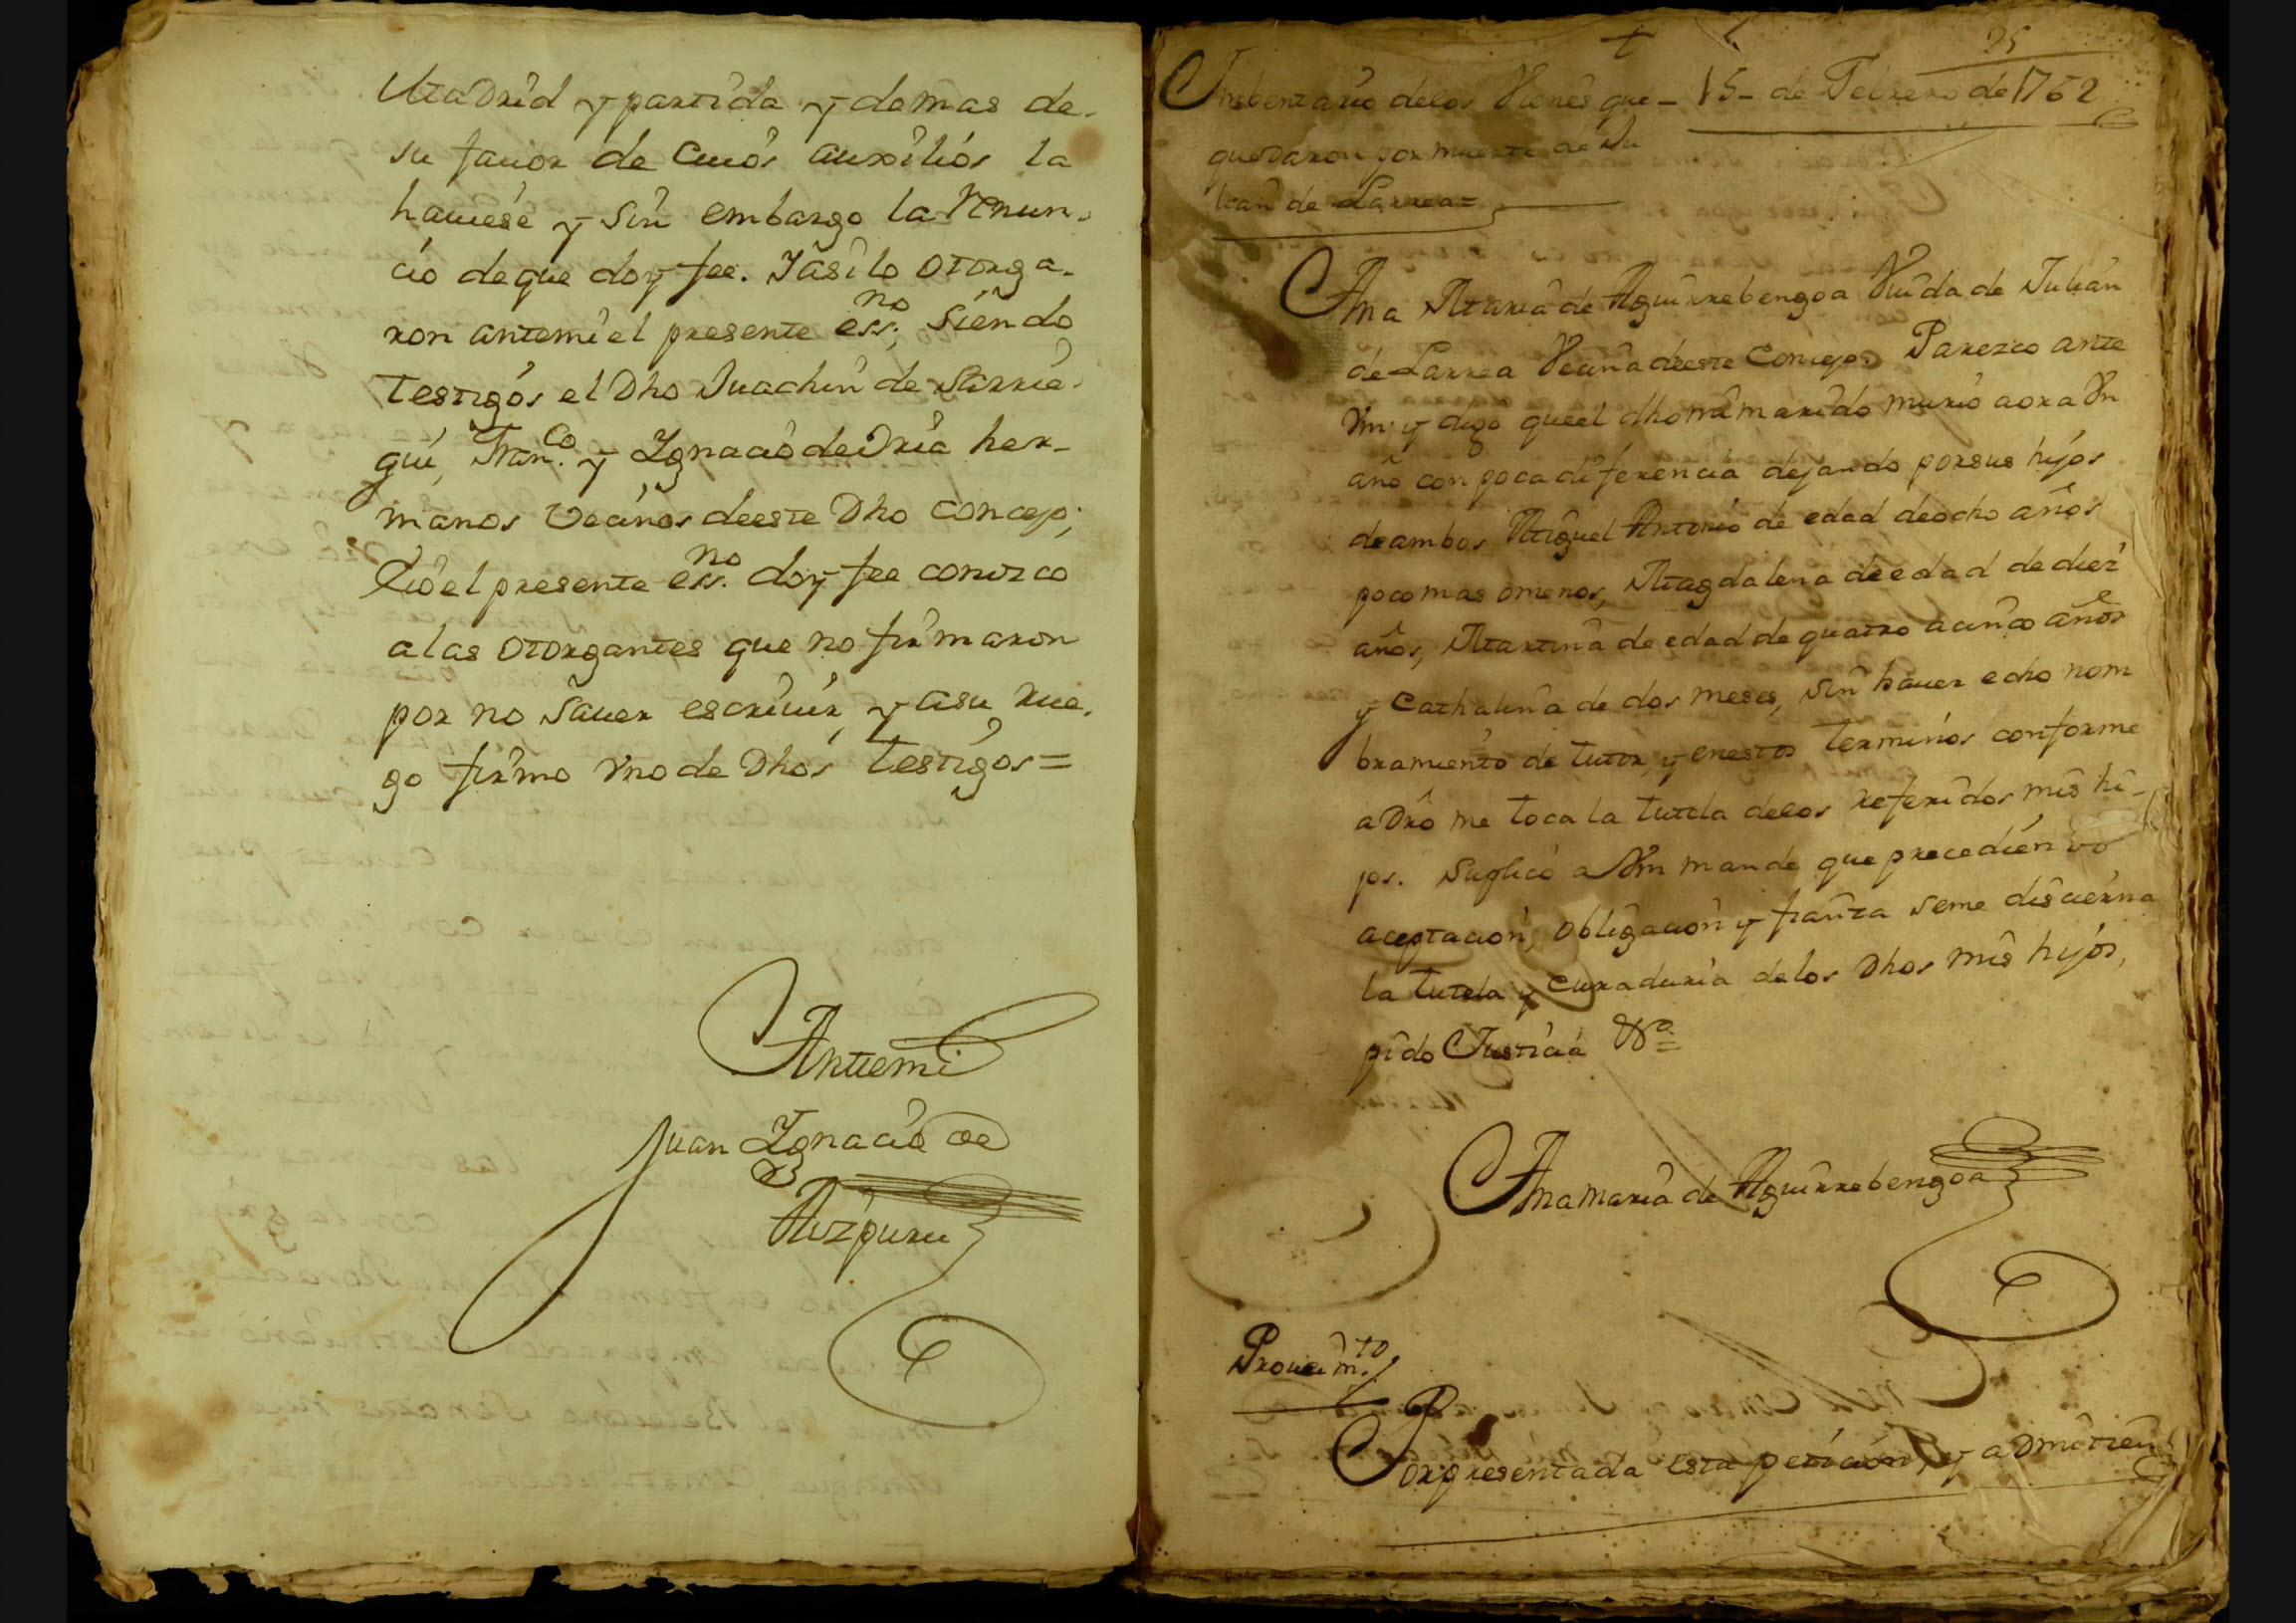 Madrid y partida y demas de-
su fauor de cuiós auxilios la
hauiese y sin embargo la renun-
ció de que doy fee. Yasi lo otorga-
ron antemi el presente essno. siendo
testigos el Dho Juachin de Larrie-
gui, Franco. y Ignacio de Vria her-
manos vecinos deeste Dho concejo;
Eió el presente essno. doy fee conozco
a las otorgantes que no firmaron
por no sauer escriuir, y asu rue-
go firmo vno de Dhos testigos=
Antemi
Juan Ignacio de
Aizpuru
+
25
Inbentario delos Vienes que - 15 - de Febrero de 1762
quedaron por muerte de Ju
lian de Larrea=
Ana Maria de Aguirrebengoa Viuda de Julian
de Larrea Vecina deeste Concejo. Parezco ante
Vm. y digo que el dho mi marido murió aora Vn
año con poca diferencia dejando por sus hijos
de ambos Miguel Antonio de edad de ocho años
poco mas omenos, Magdalena de edad de diez
años, Martina de edad de quatro acinco años
y Cathalina de dos meses, sin hauer echo nom
bramiento de tutor, y enestos terminos conforme
a Dro me toca la tutela delos referidos mis hi-
jos. Suplico a Vm mande que precediendo
aceptación, obligación y fianza seme discierna
la tutela y curaduria delos Dhos mis hijos,
pido Justicia &a=
Anamaria de Aguirrebengoa
Proueimto.
Por presentada esta petición, y admitien